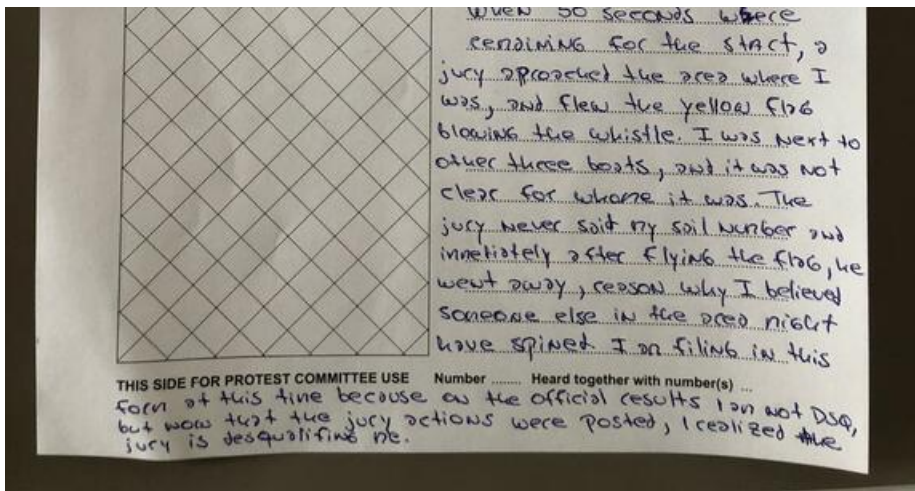 when 50 seconds where
remaining for the start, a
jury aproached the area where I
was, and flew the yellow flag
blowing the whistle. I was next to
other three boats, and it was not
clear for whome it was. The
jury never said my sail number and
inmediately after flying the flag, he
went away, reason why I believed
someone else in the area might
have spined I am filing in this
THIS SIDE FOR PROTEST COMMITTEE USE Number ........ Heard together with number(s) ...
form at this time because on the official results I am not DSQ,
but now that the jury actions were posted, I realized the
jury is desqualifing me.